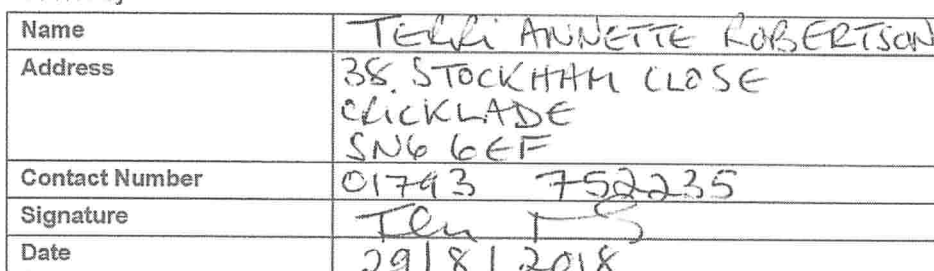 Name TERRi ANNETTE ROBERTSON
Address 38. STOCKHAM CLOSE
CRiCKLADE
SN6 6EF
Contact Number 01793 752235
Signature
Date 29/8/2018